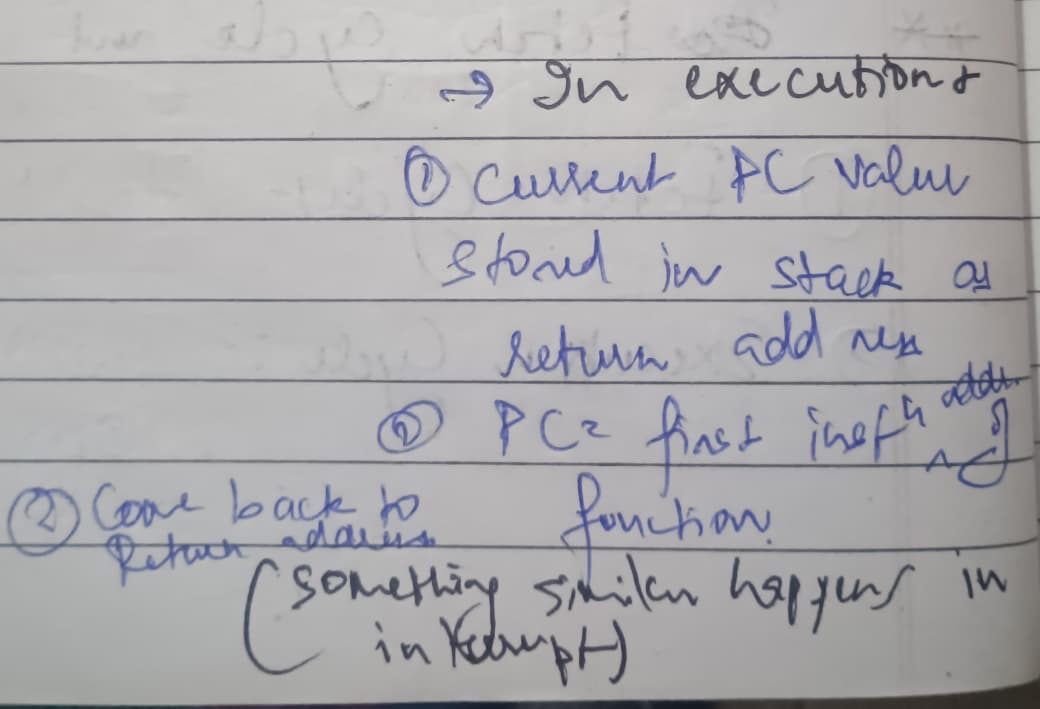 → In execution:
① Current PC value
stored in stack as
return address
② PC = first instⁿ addr. of
function.
② Come back to
Return address
(something similar happens in
interrupt)